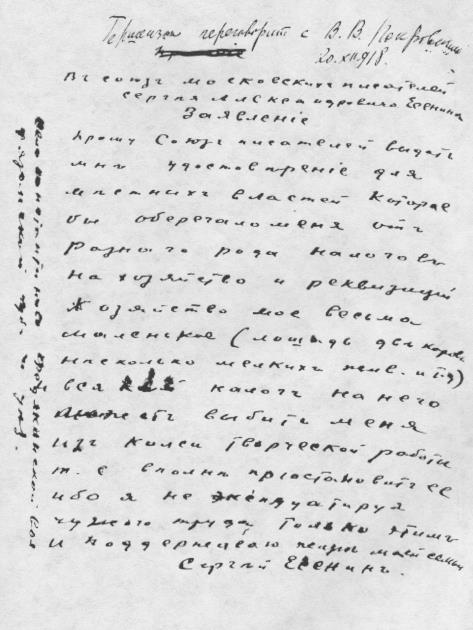 переговорит с В. В.
20.XII.918.
Въ союзъ московских писателей
Сергѣя Александровича Есенина
Заявленіе
Прошу Союзъ писателей выдать
мнѣ удостовѣреніе для
мѣстныхъ властей которае
бы оберегало меня отъ
разного рода налоговъ
на хозяйство и реквизиций
Хозяйство мое весьма
маленькое (лошадь двѣ коровы
несколько мелкихъ жив. и т.д)
всякий налогъ на него
можетъ выбить меня
изъ колеи творческой работы
т. е вполнѣ пріостановить ее
ибо я не эксплуатируя
чужого труда только этимъ
и поддерживаю жизнь моей семьи
Сергѣй Есенинъ.
Село Константиново Кузьминской вол
Рязанской губ. и уезд.